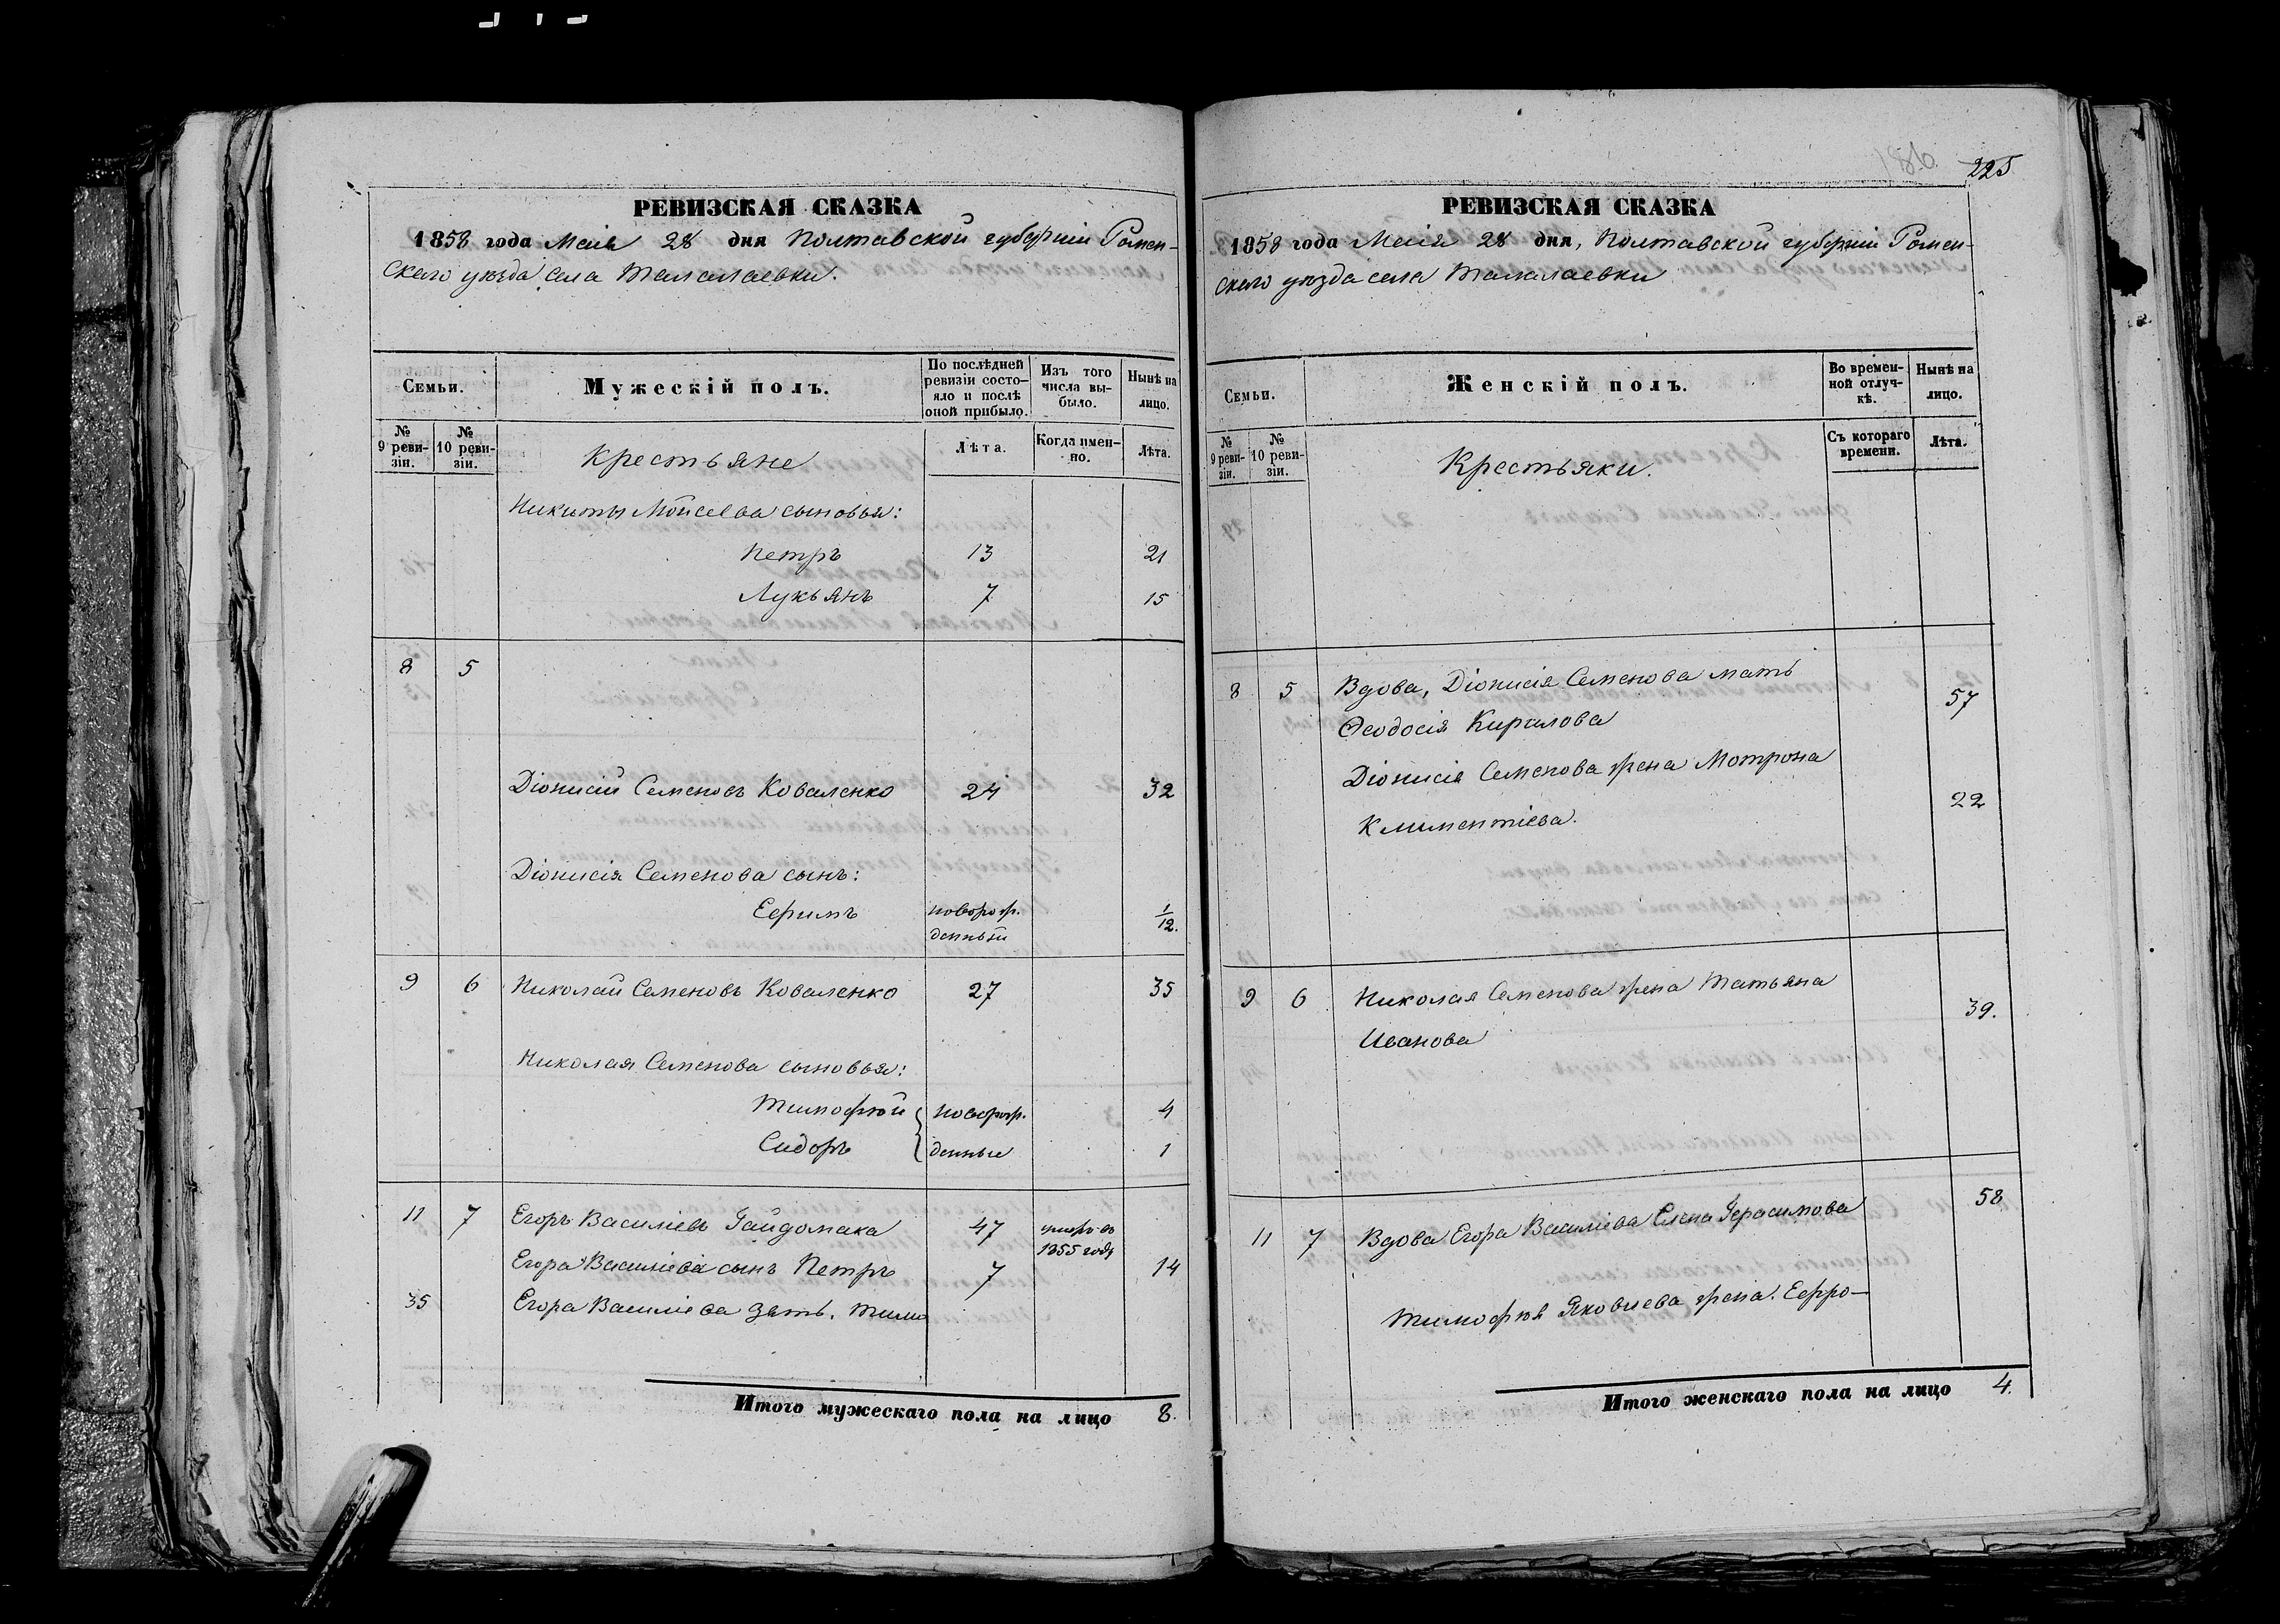 РЕВИЗСКАЯ СКАЗКА
1858 года Маія 28 дня Полтавской губерніи Ромен-
скаго уѣзда села Талалаевки.
Семьи.
Мужескій полъ.
По послѣдней ревизіи состо-яло и послѣ оной прибыло.
Изъ того числа вы-было.
Нынѣ на лицо.
№ 9 реви-зіи.
№ 10 реви-зіи.
Крестьяне
Лѣта.
Когда имен-но.
Лѣта.
Никиты Мойсеева сыновья:
Петръ 13 21
Лукьянъ 7 15
8 5
Діонисій Семеновъ Коваленко 24 32
Діонисія Семенова сынъ:
Ефимъ новорож. 1/12.
денный
9 6 Николай Семеновъ Коваленко 27 35
Николая Семенова сыновья:
Тимофѣй новорож. 4
Сидоръ денные 1
11 7 Егоръ Василіевъ Гайдомака 47 умеръ въ
1855 году
Егора Василіева сынъ Петръ 7 14
35 Егора Василіева зять. Тимо
Итого мужескаго пола на лицо 8.
186.
225
РЕВИЗСКАЯ СКАЗКА
1858 года Маія 28 дня, Полтавской губерніи Ромен-
скаго уѣзда села Талалаевки
Семьи.
Женскій полъ.
Во времен-ной отлуч-кѣ.
Нынѣ на лицо.
№ 9 реви-зіи.
№ 10 реви-зіи.
Крестьяки.
Съ котораго времени.
Лѣта.
8 5 Вдова, Діонисія Семенова мать 57
Ѳеодосія Кирилова
Діонисія Семенова жена Мотрона 22
Климентіева.
9 6 Николая Семенова жена Татьяна 39.
Иванова
11 7 Вдова Егора Василіева Елена Герасимова 58
Тимофѣя Яковлева жена. Ефро-
Итого женскаго пола на лицо 4.